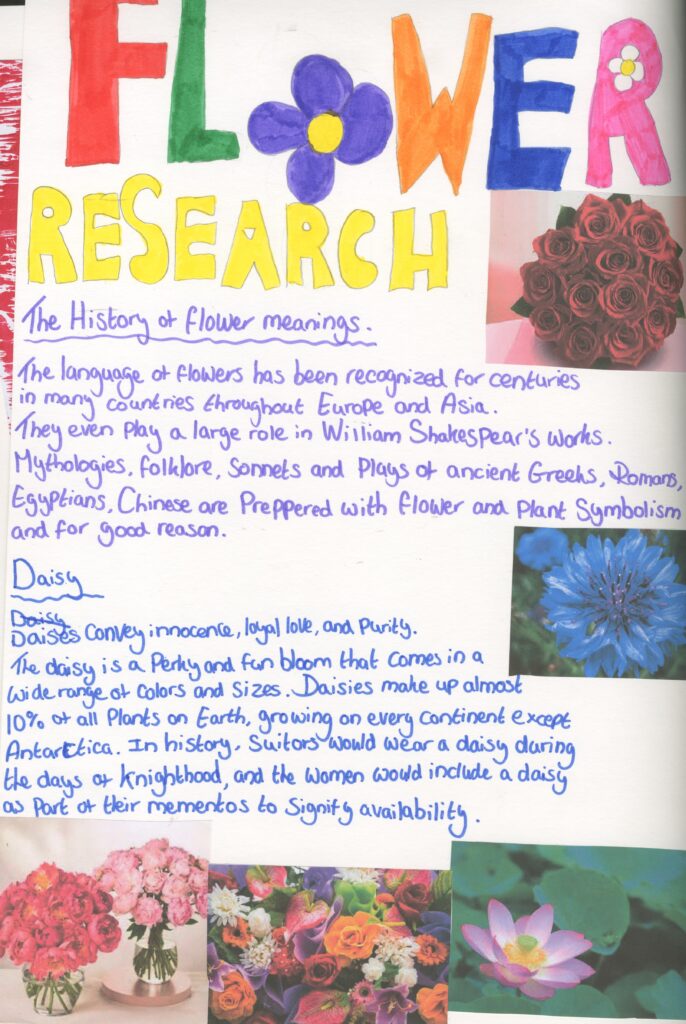 FLOWER
RESEARCH
The History of flower meanings.
The language of flowers has been recognized for centuries
in many countries throughout Europe and Asia.
They even play a large role in William Shakespear's works.
Mythologies, folklore, sonnets and plays of ancient Greeks, Romans,
Egyptians, Chinese are Preppered with flower and plant Symbolism
and for good reason.
Daisy
Daisy
Daises convey innocence, loyal love, and purity.
The daisy is a Perky and fun bloom that comes in a
wide range of colors and sizes. Daisies make up almost
10% of all Plants on Earth, growing on every continent except
Antarctica. In history, Suitors would wear a daisy during
the days of knighthood, and the women would include a daisy
as part of their mementos to signify availability.